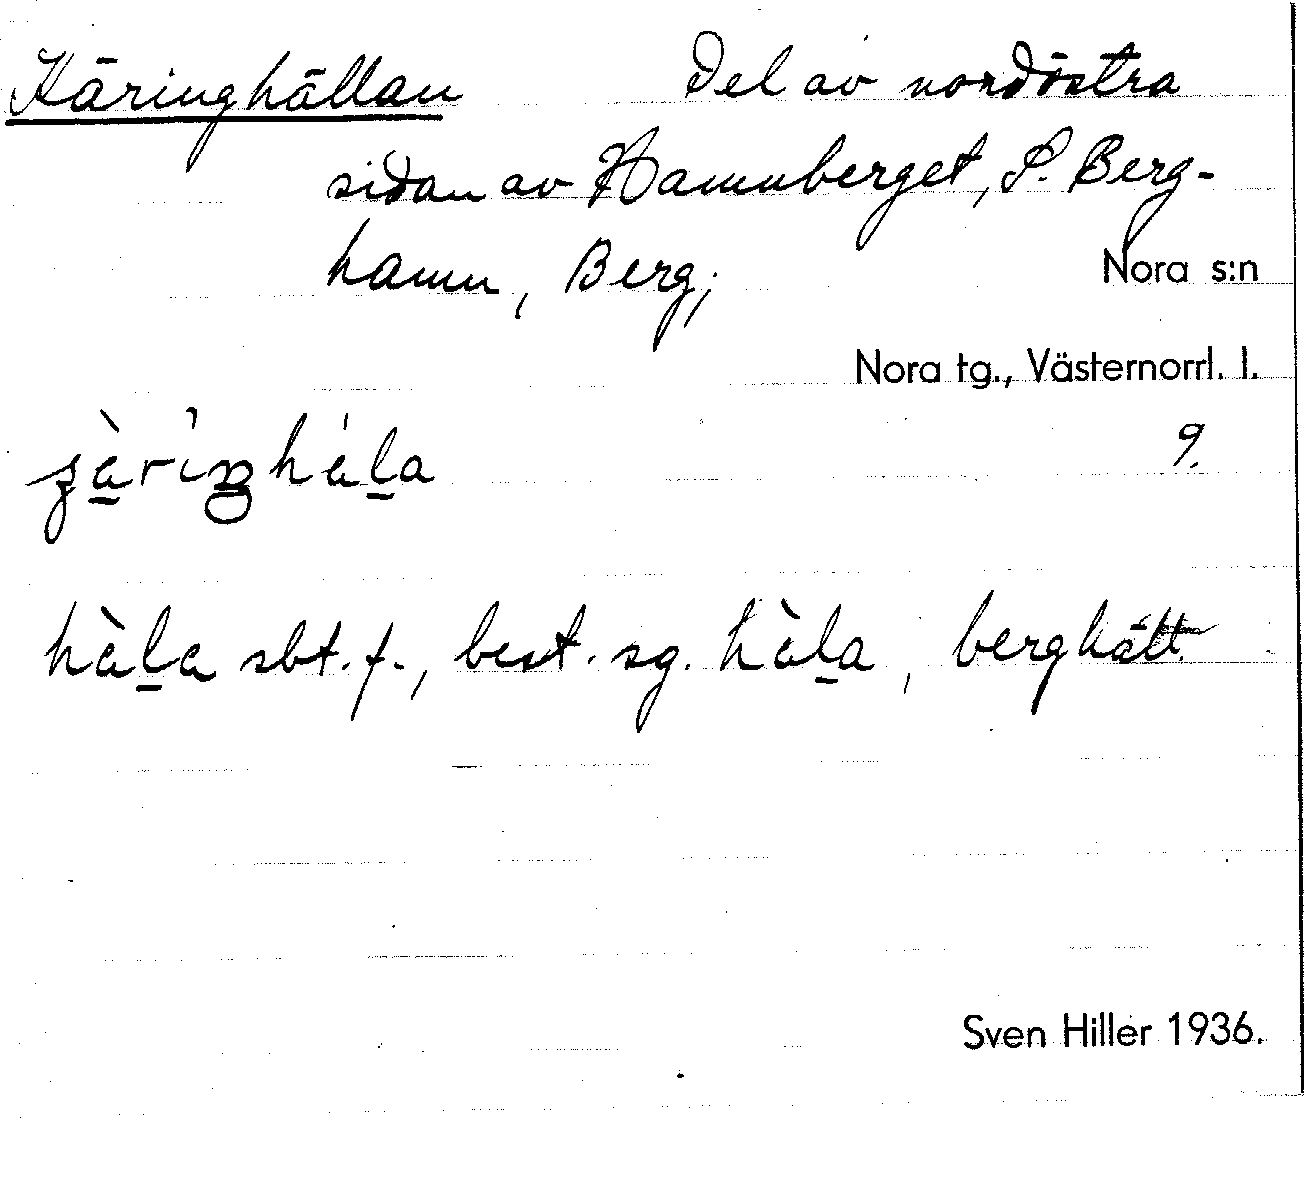 Käringhällan Del av nordöstra
sidan av Hamnberget, S. Berg-
hamn, Berg; Nora s:n
Nora tg., Västernorrl. l.
9.
hàl̲a sbt. f., best. sg. hàl̲a, berghätt.
Sven Hiller 1936.